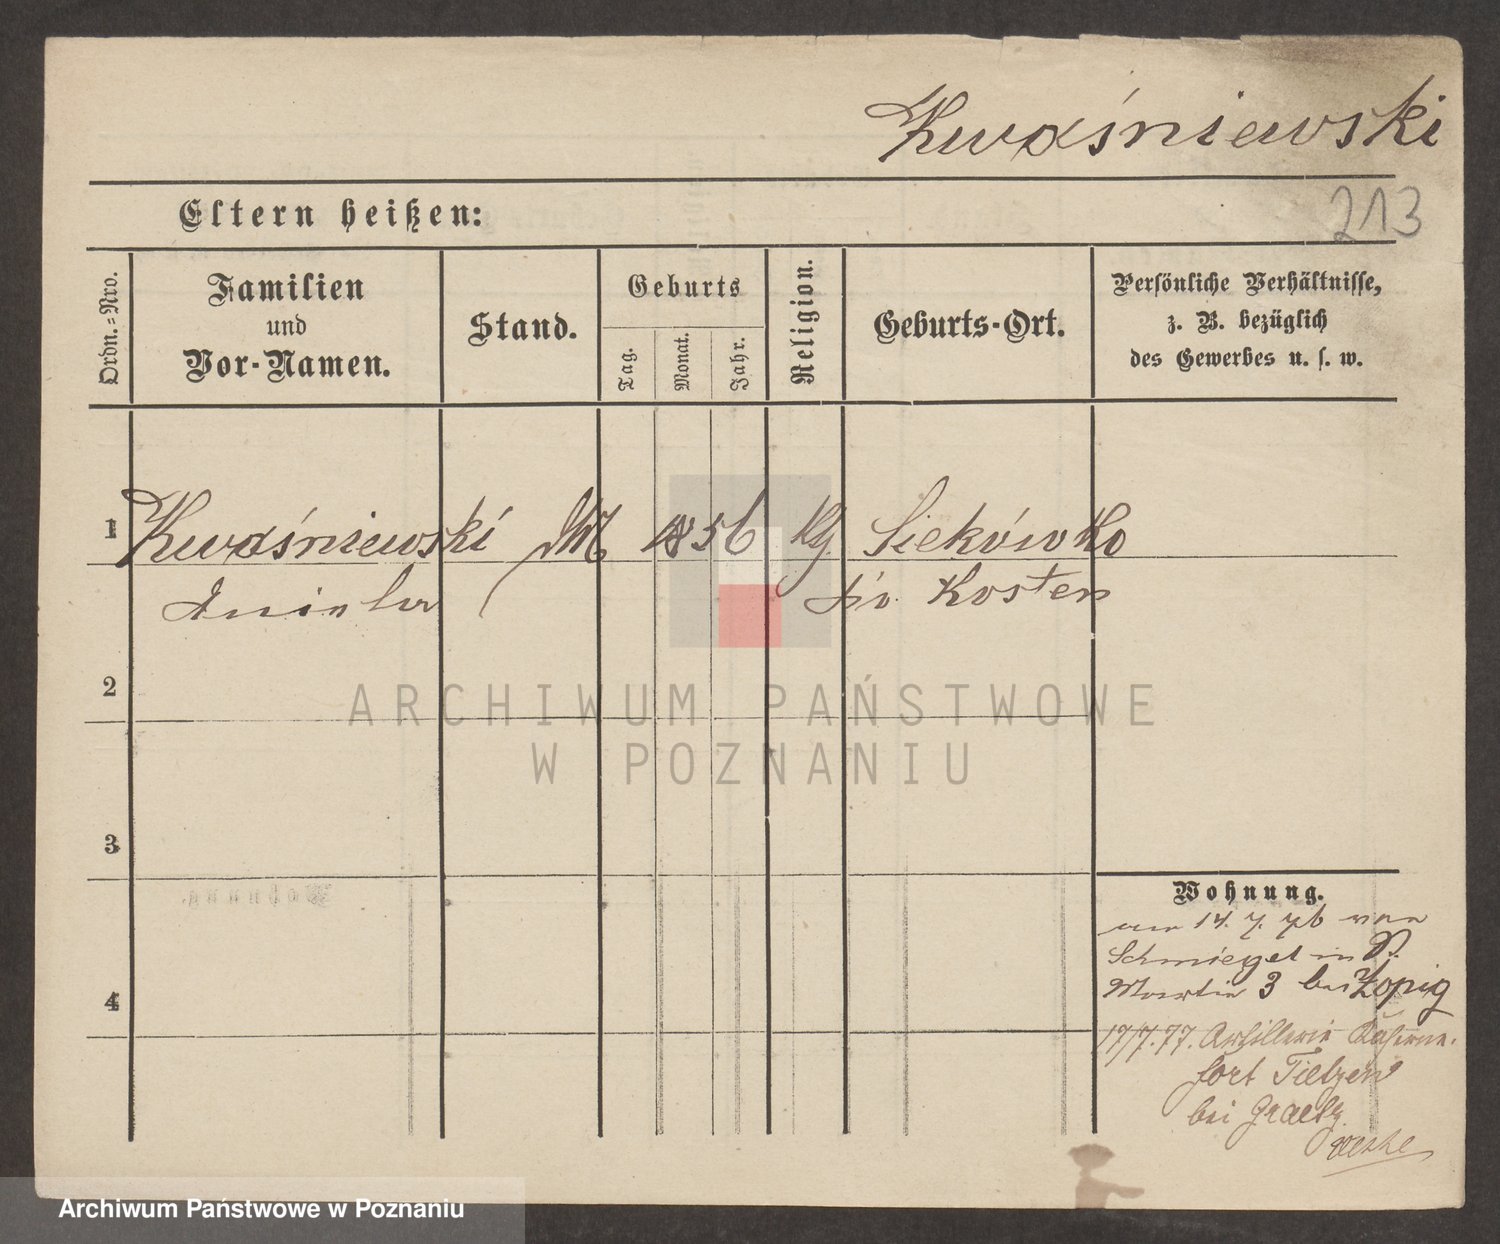 Kwaśniewski
213
Eltern heißen:
Ordn.=Nro.
Familien
und
Vor-Namen.
Stand.
Geburts
Tag.
Monat.
Jahr.
Religion.
Geburts-Ort.
Persönliche Verhältnisse,
z. B. bezüglich
des Gewerbes u. s. w.
1
Kwaśniewski 1856 Siekówko
Kosten
2
ARCHIWUM PAŃSTWOWE
W POZNANIU
3
Wohnung.
14. 7. 76 von
Schmiegel in
Martin 3 bei
4
17/7.77. Artillerie Kaserne.
fort Tietzen
bei
Archiwum Państwowe w Poznaniu